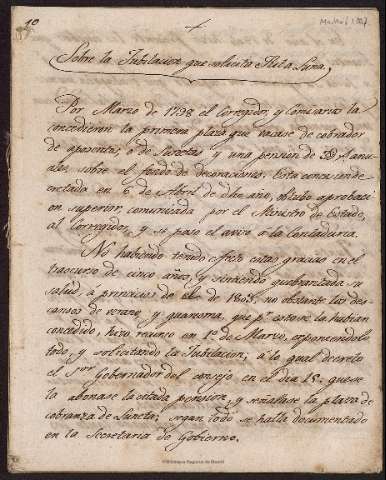 10
Sobre la Jubilacion que solicita Rita Luna.
Por Marzo de 1798 el Corregidor, y Comisarios la
concedieron la primera plaza que vacase de cobrador
de aposentos, ó de Lunetas y una pension de 3D rs anua-
les, sobre el fondo de decoraciones. Esta concesion de-
cretada en 6 de Abril de dho año, obtubo aprobaci
on superior, comunicada por el Ministro de Estado,
al Corregidor, y se paso el aviso á la Contaduria.
No habiendo tenido efecto estas gracias en el
trascurso de cinco años, y sintiendo quebrantada su
salud, á principios de el de 1803, no obstante los des-
cansos de verano, y quaresma, que pr. estos se la habian
concedido, hizo recurso en 1º. de Marzo, exponiendolo
todo, y solicitando la Jubilacion; á lo qual decretó
el Sor Gobernador del Consejo en el dia 18, que se
la abonase la citada pension, y señalase la plaza de
cobranza de Luneta; segun todo se halla documentado
en la Secretaria de Gobierno.
Biblioteca Regional de Madrid